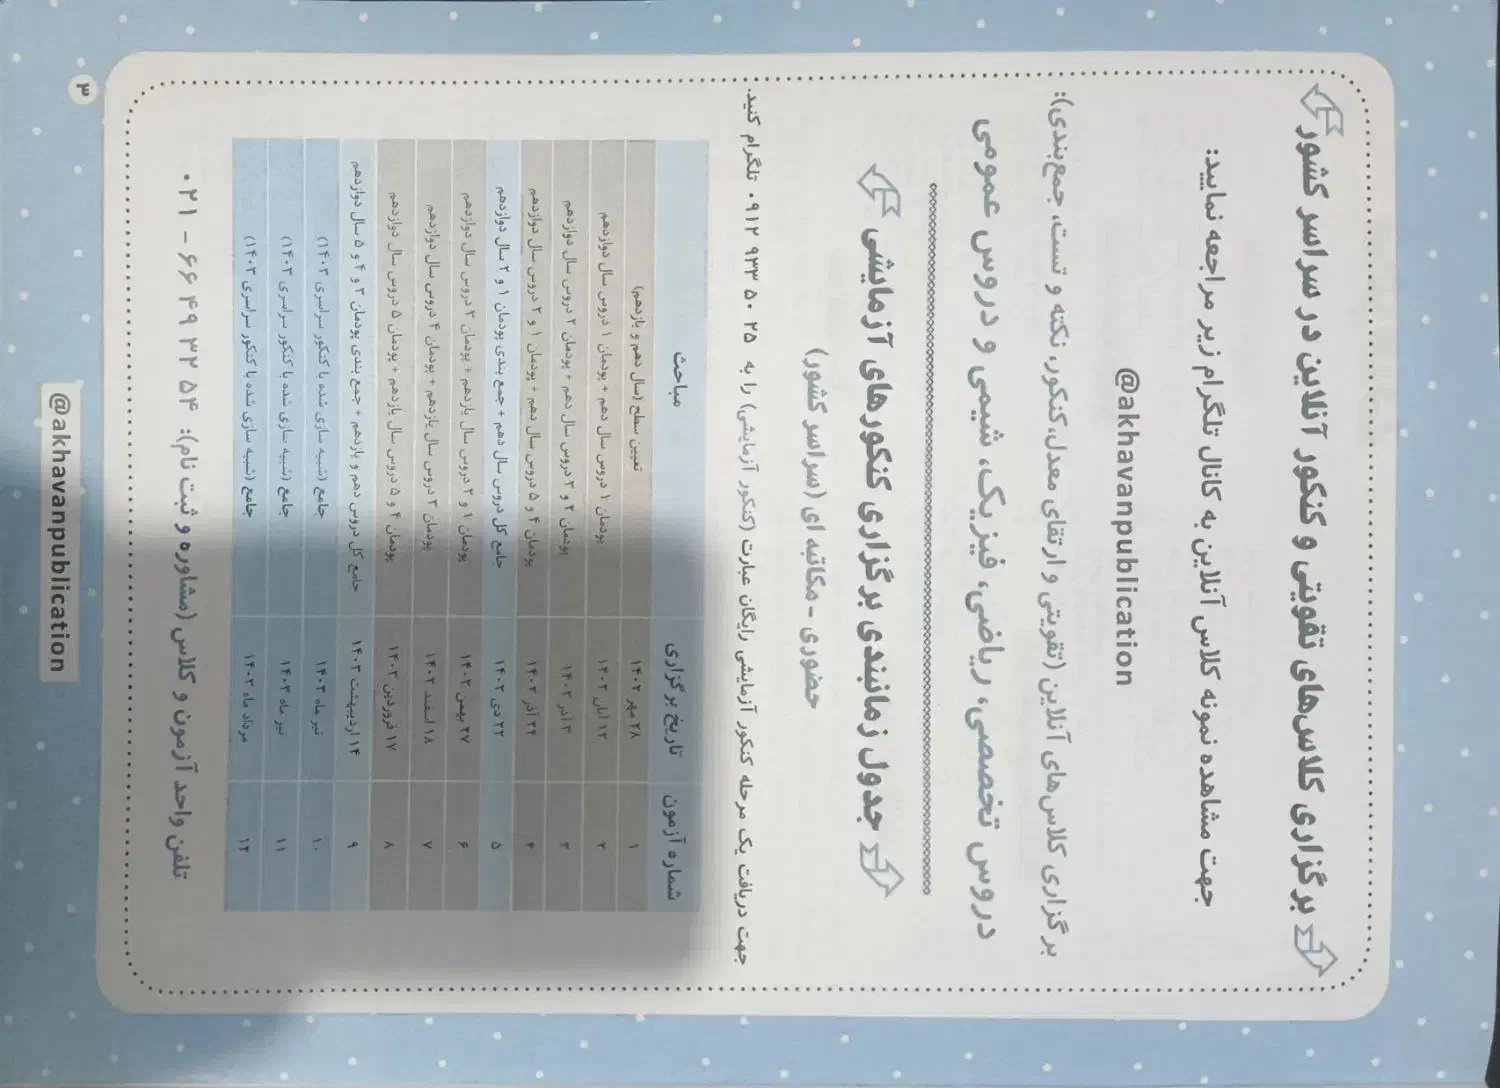 برگزاری کلاس‌های تقویتی و کنکور آنلاین در سراسر کشور
جهت مشاهده نمونه کلاس آنلاین به کانال تلگرام زیر مراجعه نمایید:
@akhavanpublication
برگزاری کلاس‌های آنلاین (تقویتی و ارتقای معدل، کنکور، نکته و تست، جمع‌بندی):
دروس تخصصی، ریاضی، فیزیک، شیمی و دروس عمومی
جدول زمانبندی برگزاری کنکورهای آزمایشی
حضوری - مکاتبه ای (سراسر کشور)
جهت دریافت یک مرحله کنکور آزمایشی رایگان عبارت (کنکور آزمایشی) را به ۲۵ ۵۰ ۹۳۳ ۰۹۱۲ تلگرام کنید.
شماره آزمون تاریخ برگزاری مباحث
۱ ۲۸ مهر ۱۴۰۲ تعیین سطح (سال دهم و یازدهم)
۲ ۱۲ آبان ۱۴۰۲ پودمان ۱ دروس سال دهم + پودمان ۱ دروس سال دوازدهم
۳ ۳ آذر ۱۴۰۲ پودمان ۲ و ۳ دروس سال دهم + پودمان ۲ دروس سال دوازدهم
۴ ۲۴ آذر ۱۴۰۲ پودمان ۴ و ۵ دروس سال دهم + پودمان ۱ و ۲ دروس سال دوازدهم
۵ ۲۲ دی ۱۴۰۲ جامع کل دروس سال دهم + جمع بندی پودمان ۱ و ۲ سال دوازدهم
۶ ۲۷ بهمن ۱۴۰۲ پودمان ۱ و ۲ دروس سال یازدهم + پودمان ۳ دروس سال دوازدهم
۷ ۱۸ اسفند ۱۴۰۲ پودمان ۳ دروس سال یازدهم + پودمان ۴ دروس سال دوازدهم
۸ ۱۷ فروردین ۱۴۰۳ پودمان ۴ و ۵ دروس سال یازدهم + پودمان ۵ دروس سال دوازدهم
۹ ۱۴ اردیبهشت ۱۴۰۳ جامع کل دروس دهم و یازدهم + جمع بندی پودمان ۳ و ۴ و ۵ سال دوازدهم
۱۰ تیر ماه ۱۴۰۳ جامع (شبیه سازی شده با کنکور سراسری ۱۴۰۳)
۱۱ تیر ماه ۱۴۰۳ جامع (شبیه سازی شده با کنکور سراسری ۱۴۰۳)
۱۲ مرداد ماه ۱۴۰۳ جامع (شبیه سازی شده با کنکور سراسری ۱۴۰۳)
تلفن واحد آزمون و کلاس (مشاوره و ثبت نام): ۵۴ ۳۲ ۴۹ ۶۶ - ۰۲۱
@akhavanpublication
۳